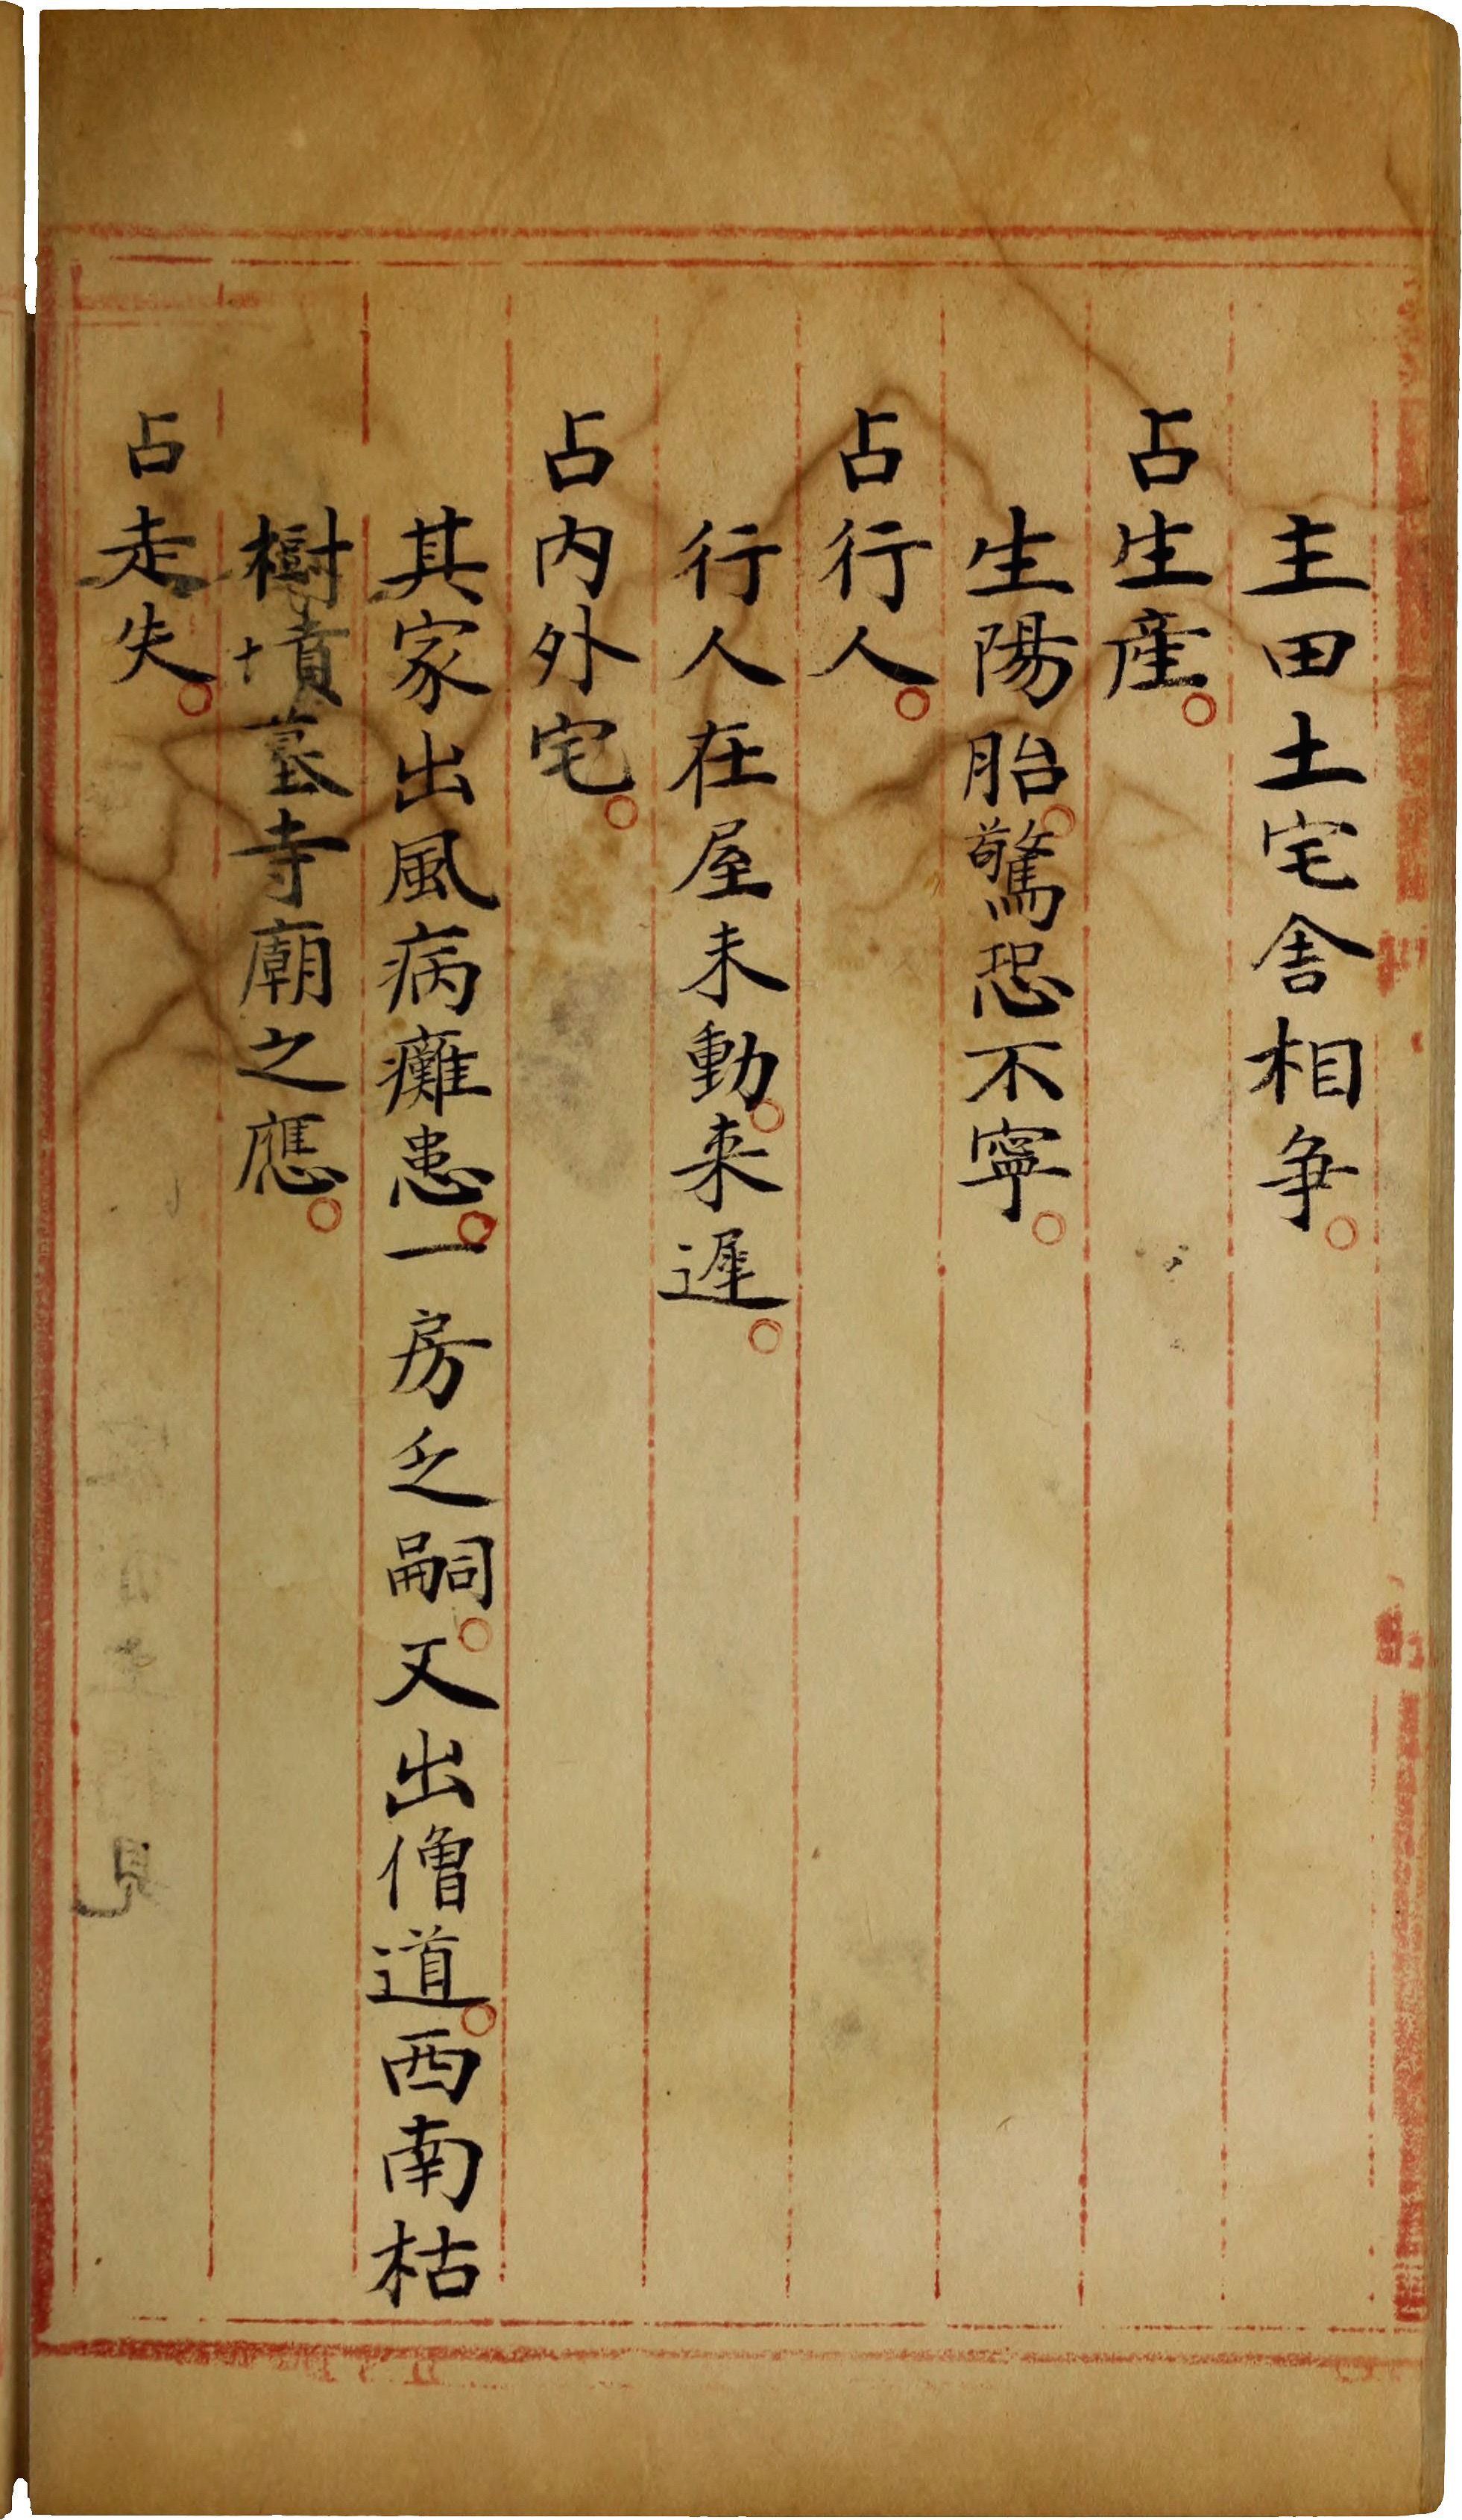 主田土宅舍相争。
占生産。
生陽胎。驚恐不寧。
占行人。
行人在屋未動。来遲。
占内外宅。
其家出風病癱患。一房乏嗣。又出僧道。西南枯
樹墳墓寺廟之應。
占走失。